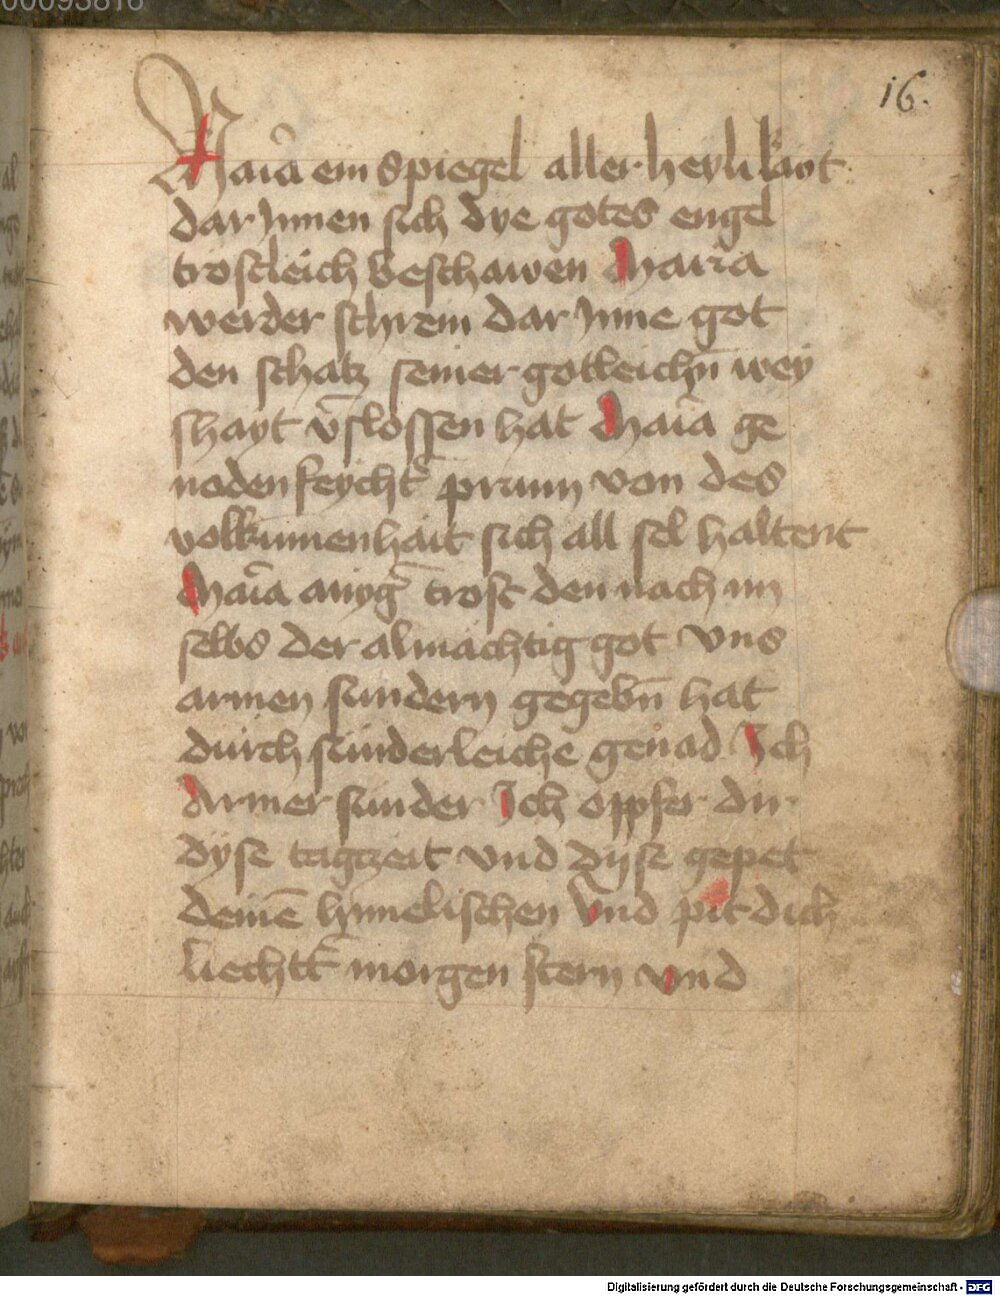 00093816
16.
Maīa ein spiegel aller heylikayt
dar ynnen sich dye gotes engel
trostleich beschawen Maria
werder schrein dar ynne got
den schatz seiner gotleichn̄ wey
shayt v̄slossen hat Maīa ge
naden feycht' prunn von des
volkumenhait sich all sel haltent
Maīa ainyg' trost den nach im
selbs der almächtig got vns
armen sundern gegebn̄ hat
durch sunderleiche genad Ich
Armer sunder Ich opfer dir
dyse tagzeit vnd dyse gepet
deinē hymelischen vnd pit dich
liechtt' morgen stern vnd
Digitalisierung gefördert durch die Deutsche Forschungsgemeinschaft - DFG